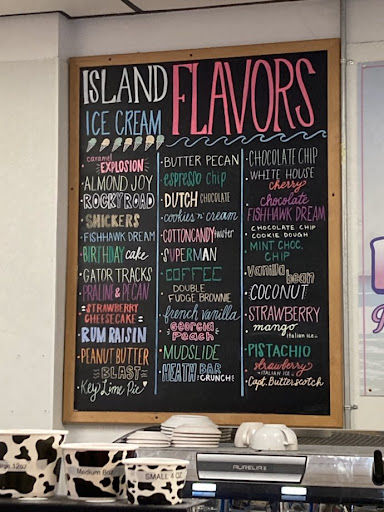 ISLAND FLAVORS
ICE CREAM
caramel
EXPLOSION
ALMOND JOY
ROCKY ROAD
SNICKERS
FISHHAWK DREAM
BIRTHDAY cake
GATOR TRACKS
PRALINE & PECAN
STRAWBERRY
CHEESECAKE
RUM RAISIN
PEANUT BUTTER
BLAST
Key Lime Pie
BUTTER PECAN
espresso chip
DUTCH CHOCOLATE
cookies 'n' cream
COTTONCANDY twister
SUPERMAN
COFFEE
DOUBLE
FUDGE BROWNIE
french vanilla
georgia
PEACH
MUDSLIDE
HEATH BAR
CRUNCH!
CHOCOLATE CHIP
WHITE HOUSE
cherry
chocolate
FISHHAWK DREAM
CHOCOLATE CHIP
COOKIE DOUGH
MINT CHOC.
CHIP
Vanilla bean
COCONUT
STRAWBERRY
mango
italian ice
PISTACHIO
strawberry
ITALIAN ICE
Capt. Butterscotch
AURELIA II
Large 12oz
Medium 8oz
SMALL 4 OZ